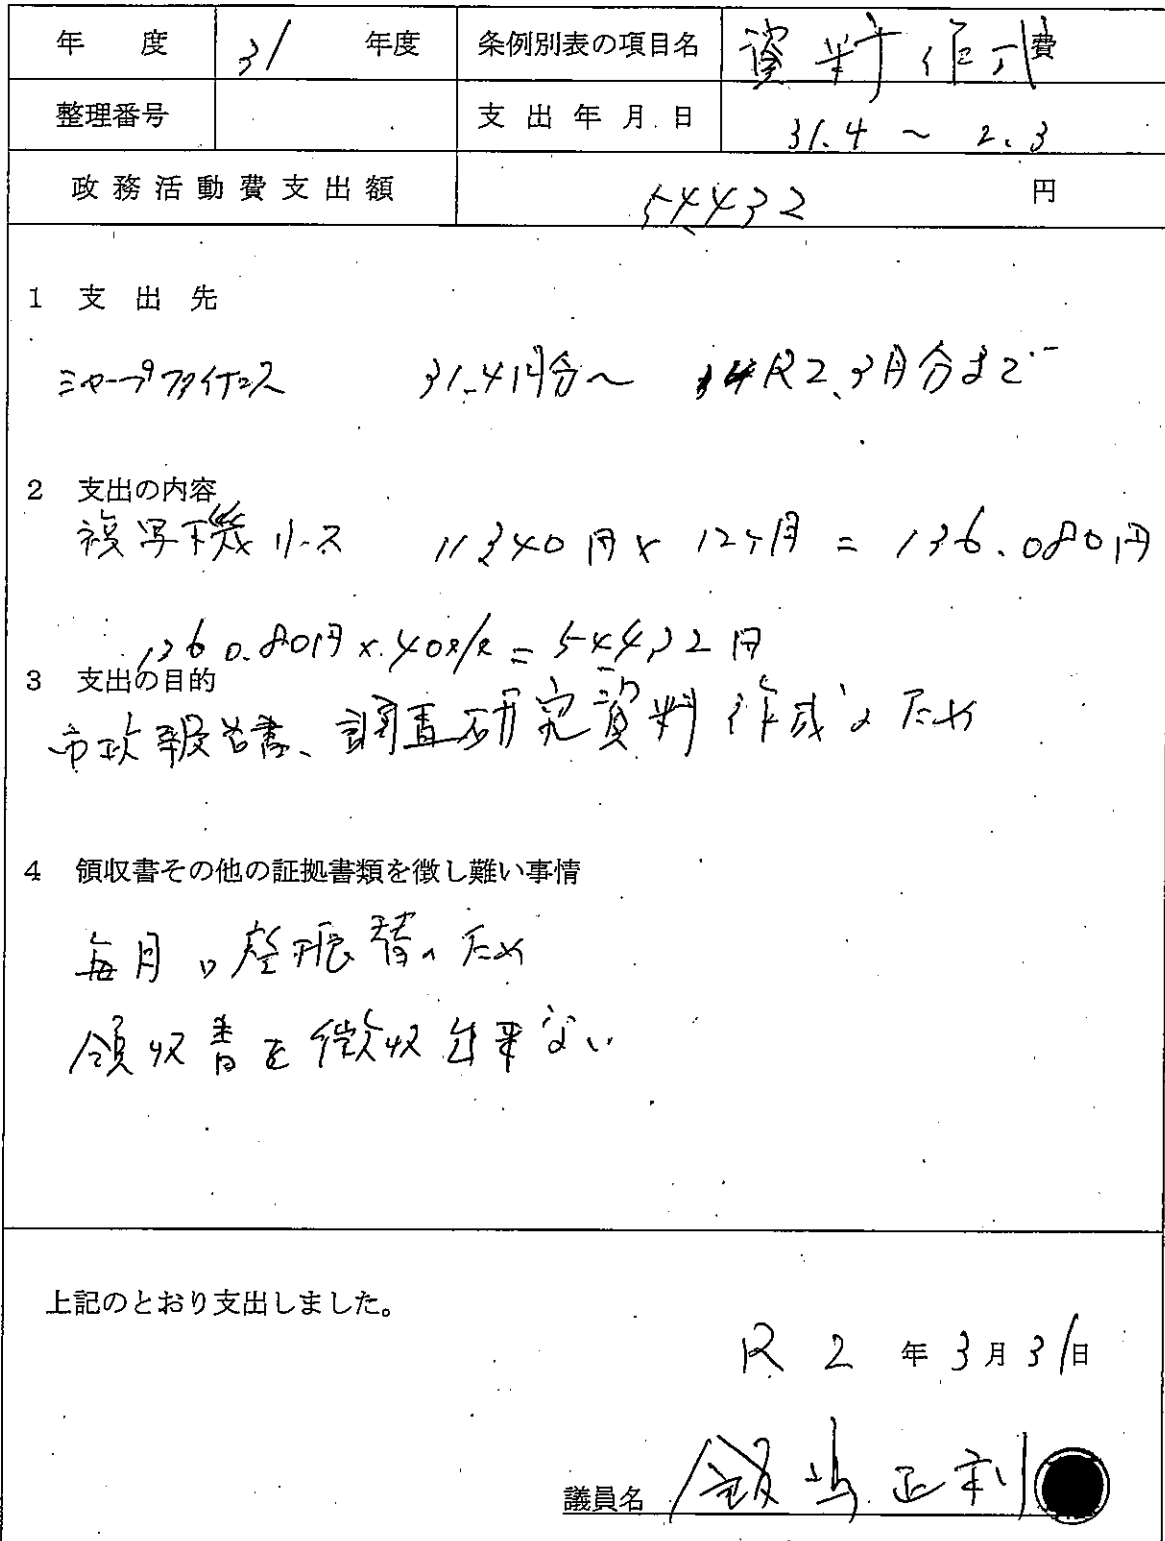 年度 31 年度 条例別表の項目名 資料作成費
整理番号 支出年月日 31.4 ~ 2.3
政務活動費支出額 54432 円
1 支出先
シャープファイナンス 31.4月分～ R2.3月分まで
2 支出の内容
複写機リース 11340円×12ヶ月=136.080円
1360.80円×.40%=54432円
3 支出の目的
市政報告書、調査研究資料作成のため
4 領収書その他の証拠書類を徴し難い事情
毎月口座振替のため
領収書を徴収出来ない
上記のとおり支出しました。
R2年3月31日
議員名 飯嶋正利